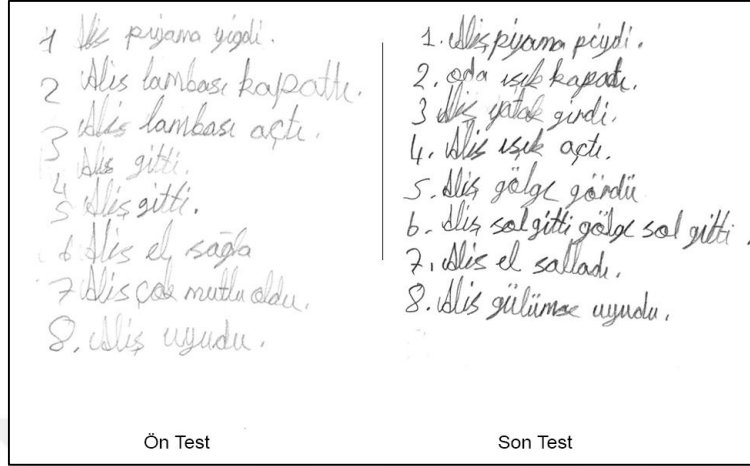 1 Alis pijama yigdi.
2 Alis lambası kapattı.
3 Alis lambası açtı.
4 Alis gitti.
5 Aliş gitti.
6 Alis el sağla
7 Alis çok mutlu oldu.
8. Aliş uyudu.
Ön Test
1. Aliş pijama piydi.
2. oda ışık kapadı.
3 Aliş yatak girdi.
4. Aliş ışık açtı.
5. Aliş gölge gördü
6. Aliş sol gitti gölge sol gitti.
7. Alis el salladı.
8. Alis gülümse uyudu.
Son Test